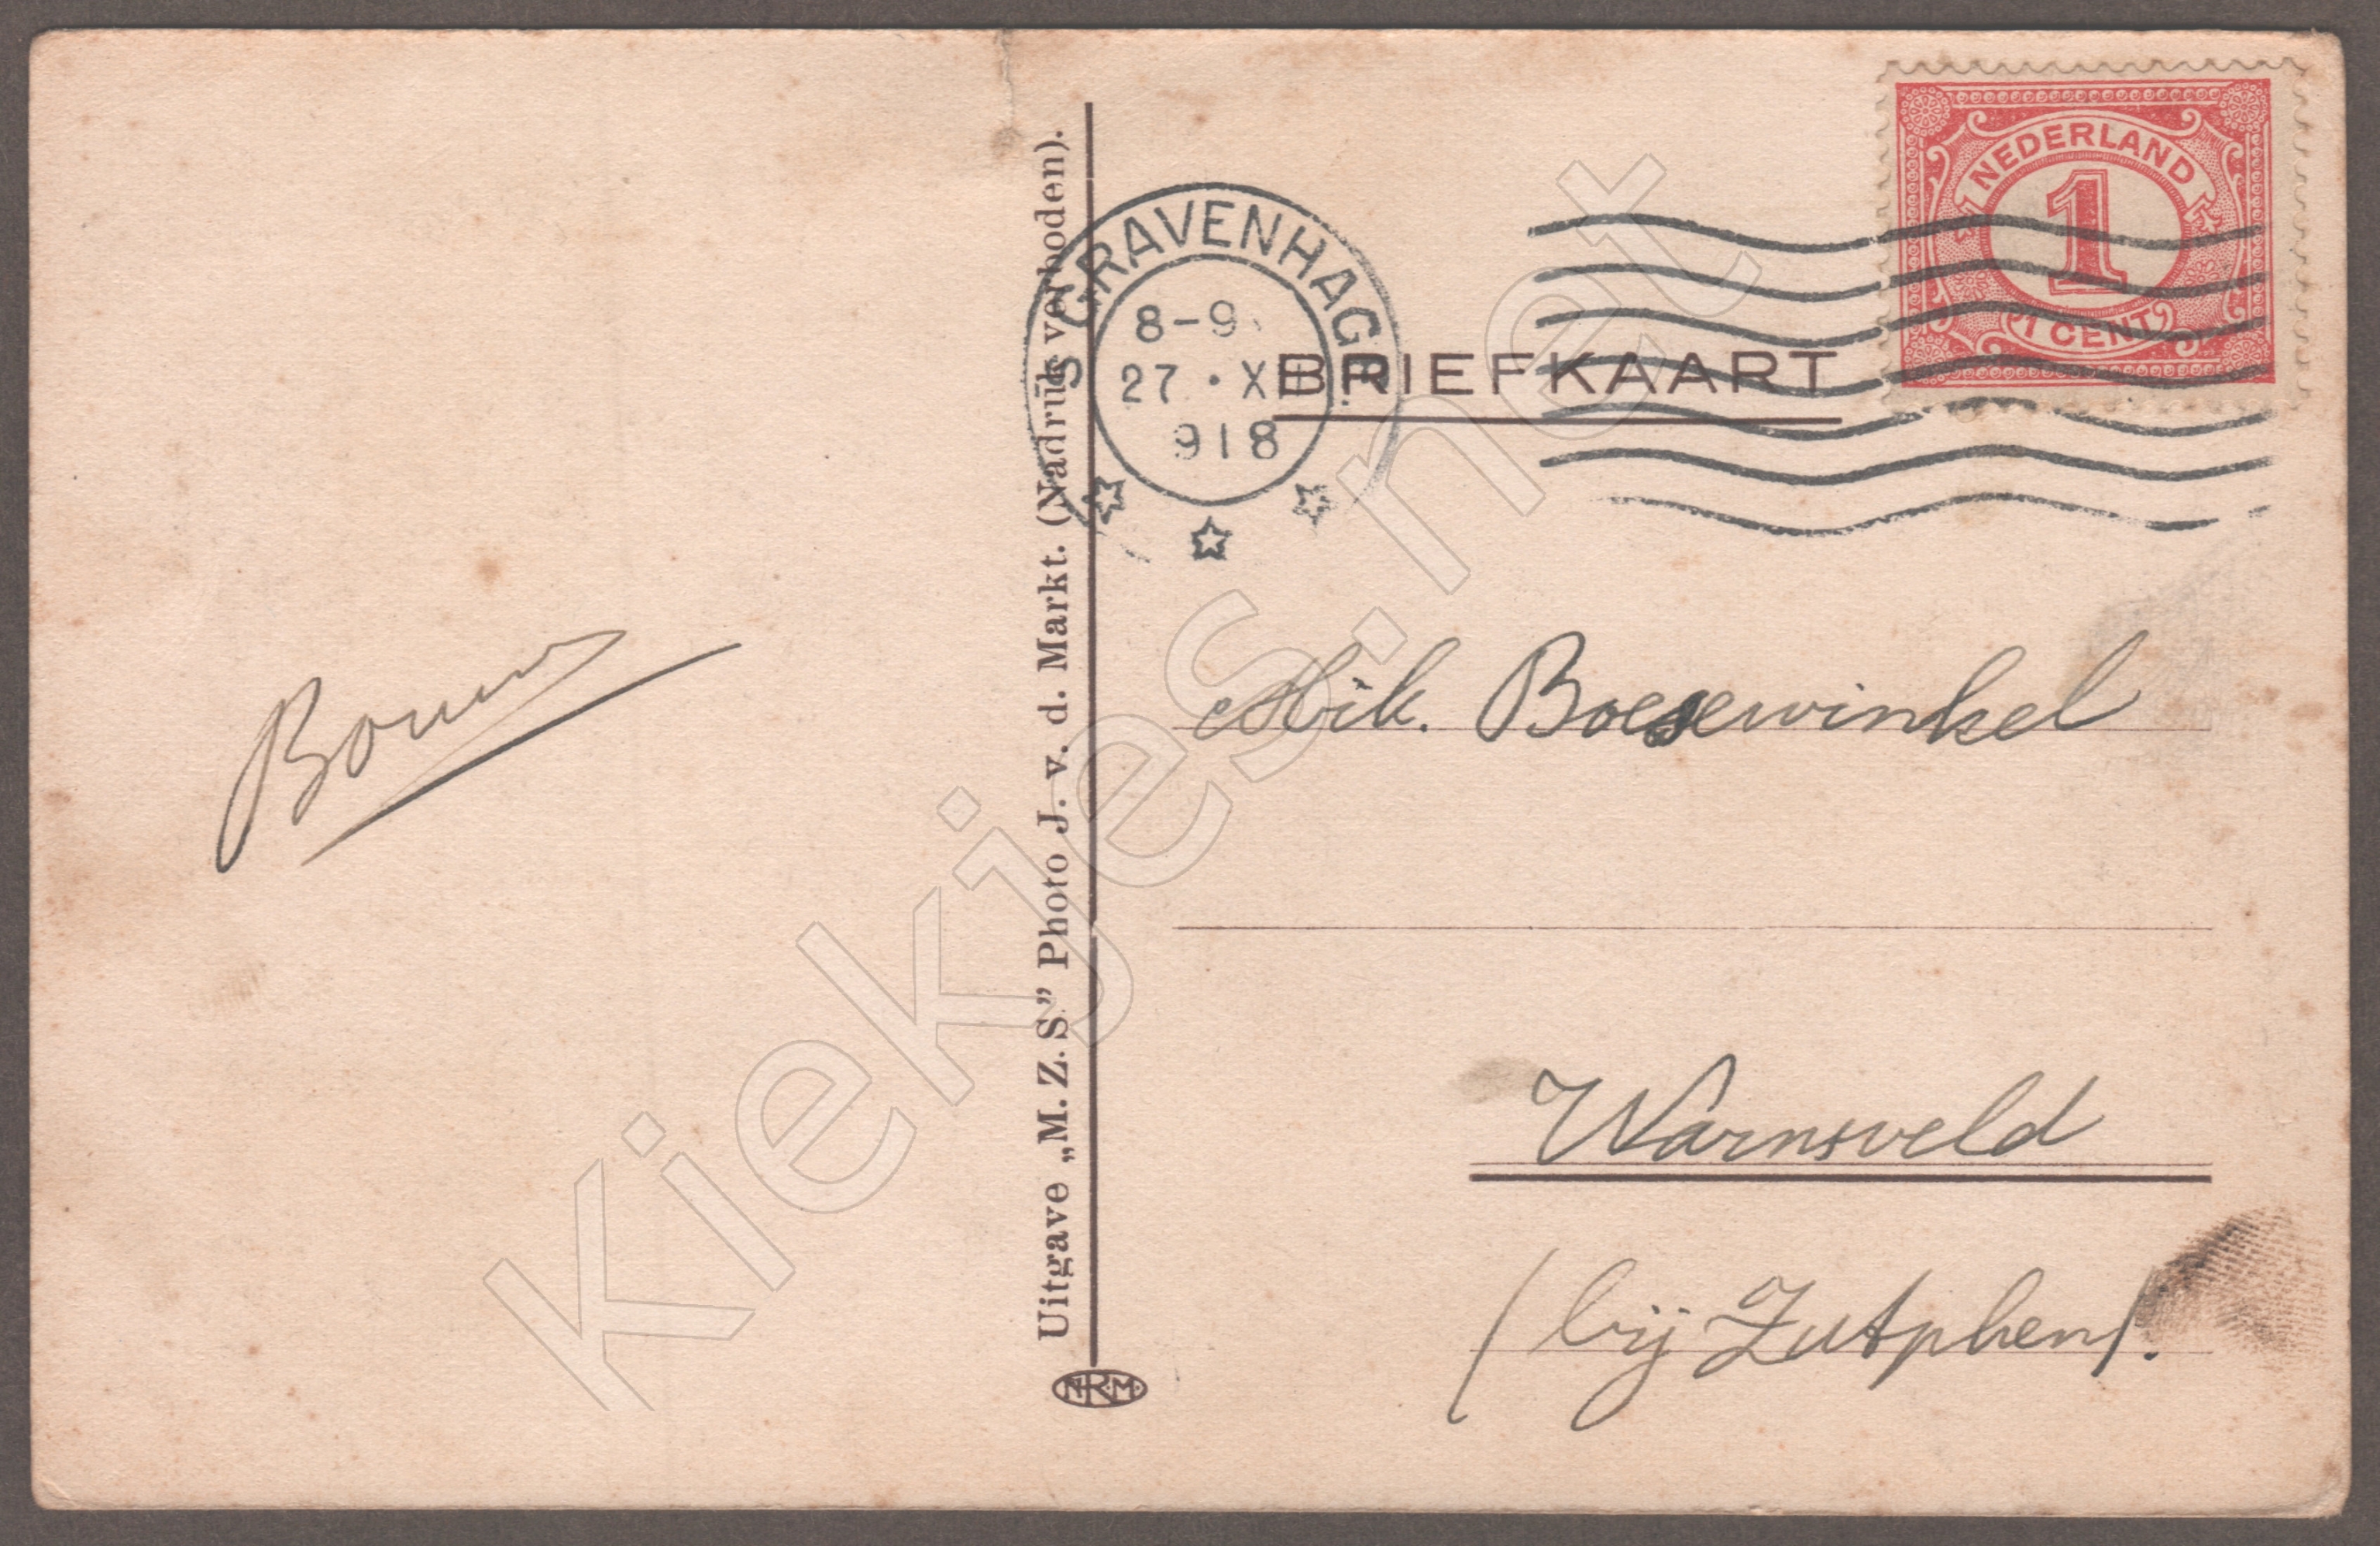 Uitgave „M. Z. S.” Photo J. v. d. Markt. (Nadruk verboden).
N.R.M.
'S GRAVENHAGE
8-9
27 · XII
918
BRIEFKAART
NEDERLAND
1
1 CENT
Boesewinkel
Warnsveld
(bij Zutphen).
Kiekjes.net